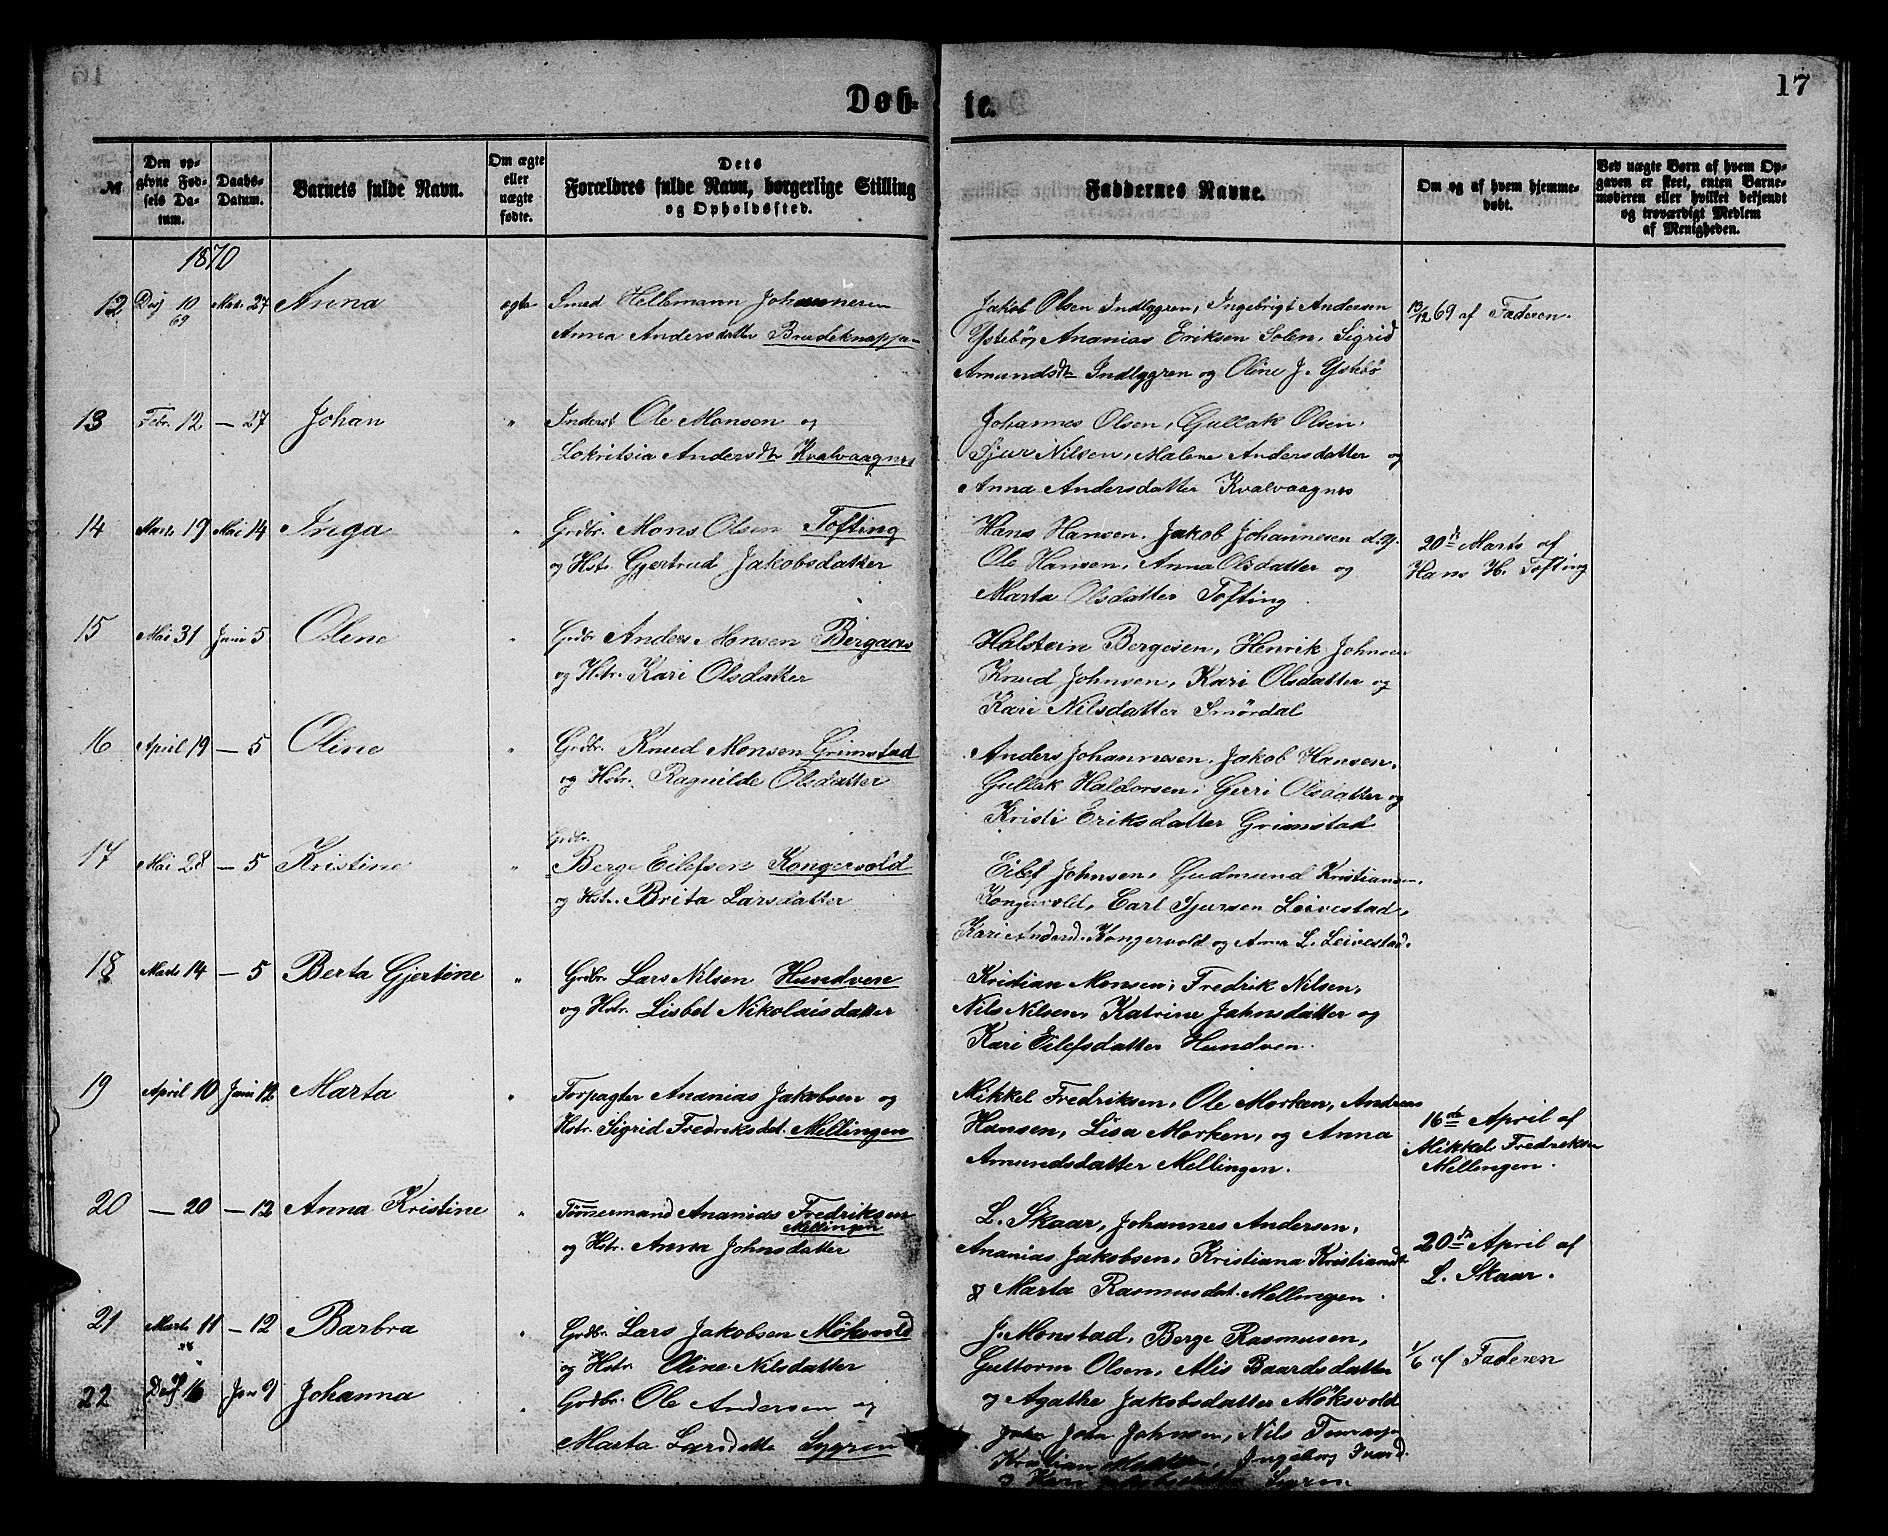 17
Døb- te.
№
Den opgivne Fødsels Datum.
Daabs-Datum.
Barnets fulde Navn.
Om ægte eller uægte fødte.
Dets
Forældres fulde Navn, borgerlige Stilling
og Opholdssted.
Faddernes Navne.
Om og af hvem hjemmedøbt.
Ved uægte Børn af hvem Opgaven er skeet, enten Barnemoderen eller hvilket bekjendt og troværdigt Medlem af Menigheden.
1870
12 10 69 Marts 27 Anna ægte Smed Hellemann Johannesen
Anna Andersdatter
Jakob Olsen Indlyggren, Ingebrigt Andersen
Ystebø, Ananias Eriksen Solen, Sigrid
Amundsdtr Indlyggren og Oline J. Ystebø
13/12 69 af Faderen.
13 Febr. 12 — 27 Johan " Inderst Ole Monsen og
Lokritsia Andersdtr Kvalvaagnes
Johannes Olsen, Gullak Olsen,
Sjur Nilsen, Malene Andersdatter og
Anna Andersdatter Kvalvaagnes
14 Marts 19 Mai 14 Inga " Grdbr. Mons Olsen Tofting
og Hstr. Gjertrud Jakobsdatter
Hans Hansen, Jakob Johannesen d.y.
Ole Hansen, Anna Olsdatter og
Marta Olsdatter Tofting.
20de Marts af
Hans H. Tofting
15 Mai 31 Juni 5 Olene " Grdbr Anders Monsen Bergaas
og Hstr. Kari Olsdatter
Halstein Bergesen, Henrik Johnsen
Knud Johnsen, Kari Olsdatter og
Kari Nilsdatter Smørdal
16 April 19 — 5 Oline " Grdbr. Knud Monsen Grimstad
og Hstr. Ragnilde Olsdatter
Anders Johannesen, Jakob Hansen,
Gullak Haldorsen, Gerri Olsdatter og
Kristi Eriksdatter Grimstad
17 Mai 28 — 5 Kristine " Grdbr.
Berge Eilefsen Kongsvold
og Hstr. Brita Larsdatter
Eilef Johnsen, Gudmund Kristiansen,
Kongevold, Carl Sjursen Leivestad,
Kari Andersd. Kongervold og Anna L. Leivestad.
18 Marts 14 — 5 Berta Gjertine " Grdbr. Lars Nilsen Hundven
og Hstr. Lisbet Nikolaisdatter
Kristian Monsen, Fredrik Nilsen,
Nils Nilsen, Katrine Jahnsdatter og
Kari Eilefsdatter Hundven.
19 April 10 Juni 12 Marta " Forpagter Ananias Jakobsen og
Hstr. Sigrid Fredriksdet. Mellingen
Mikkel Fredriksen, Ole Morken, Andreas
Hansen, Lisa Morken, og Anna
Amundsdatter Mellingen.
16de April af
Mikkel Fredriksen
Mellingen.
20 — 20 — 12 Anna Kristine " Tømmermand Ananias Fredriksen
Mellingen
og Hstr. Anna Johnsdatter
L. Skaar, Johannes Andersen,
Ananias Jakobsen, Kristiana Kristiansd
& Marta Rasmusdat. Mellingen.
20de April af
L. Skaar.
21 Marts 11 — 12 Barbra " Grdbr. Lars Jakobsen Møksvold
og Hstr. Oline Nilsdatter
J. Monstad, Berge Rasmusen,
Guttorm Olsen, Alis Baardsdatter
og Agathe Jakobsdatter Møksvold
1/6 af Faderen
22 16 Jan 9 Johanna " Grdbr. Ole Andersen og
Marta Larsdatte Sygren
John Johnsen, Nils
Kristian Ingeborg